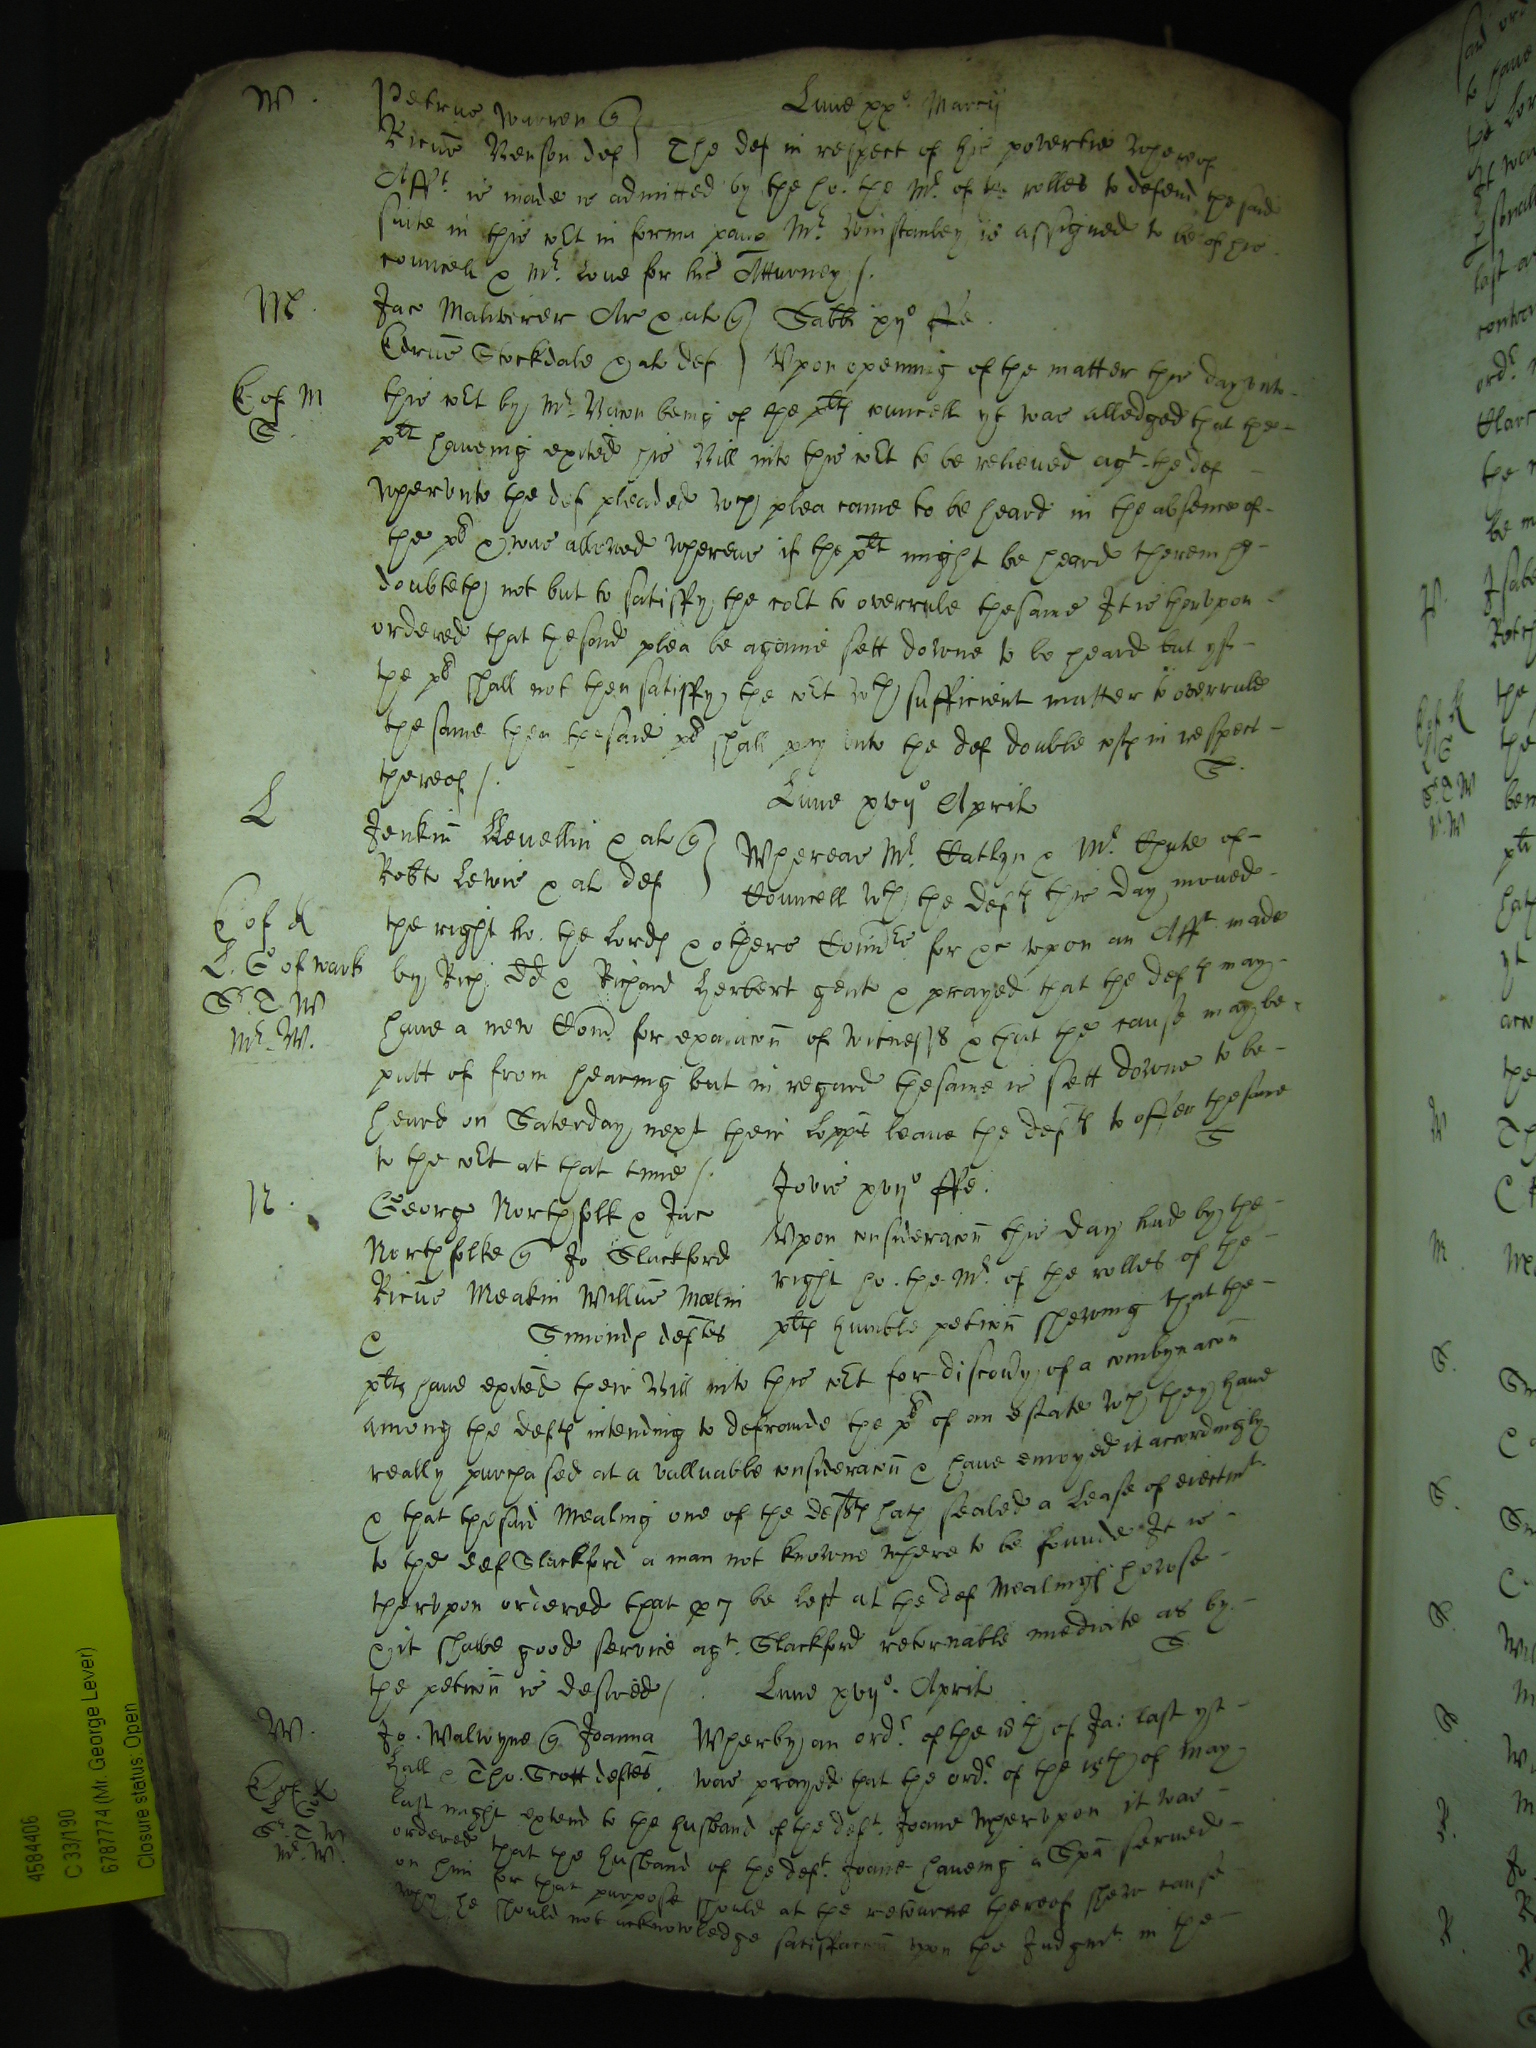 W. Petrus Warren q Lune xxo Marcij
Ricus Benson def The def in respect of his povertie whereof
Afft is made is admitted by the ho. the Mr of the rolles to defend the said
suite in this cort in forma paup Mr Winstanley is assigned to be of his
councell & Mr Love for his Atturney /.
M. Jac Maliverer Ar & al q Sabbi xvijo ffe.
Stockdale & al def Vpon opening of the matter this day vnto
C of M this cort by Mr being of the plts councell yt was alledged that the
S. plt haveing exited his Bill into this cort to be releived agt the def
whervnto the def pleaded wch plea came to be heard in the absence of
the pl & was allowed whereas if the plt might be heard therein he
doubteth not but to satisfy the cort to overrule the same It is thervpon
ordered that the said plea be againe sett downe to be heard but yf
the pl shall not then satisfy the cort wth sufficient matter to overrule
the same then the said pl shall pay vnto the def double costs in respect
thereof /. S.
L Lune xvijo Aprilis
Jenkin Llevellin & al q Whereas Mr Catlyn & Mr Chute of
Robte Lewis & al def Councell wth the defts this day moved
C of K the right ho. the Lords & others Comrs for &c vpon an Afft made
L. G of wark by Rich & Richard Herbert gents & prayed that the defts may
Sr. T W have a new Com for exaiacon of witnesses & that the cause may be
Mr. W. putt of from hearing but in regard the same is sett downe to be
heard on Saterday next their Lopps leave the defts to offer the same
to the cort at that time /. S
N. Jovis xvijo ffe.
George Northfolk & Jac Vpon consideracon this day had by the
Northfolke q Jo Slackford right ho. the Mr of the rolles of the
Ricus Meakin Willus plts humble peticon shewing that the
& Simonds deftes
plts have exited their Bill into this cort for discovy of a combynacon
among the defts intending to defraude the pl of an estate wch they have
really purchased at a valluable consideracon & have enioyed it accordingly
& that the said Mealing one of the defts hath sealed a Lease of eiectmt
to the def Slackford a man not knowne where to be founde It is
thervpon ordered that be left at the def Mealings howse
& it shalbe good service agt Slackford retornable imediate as by
the peticon is desired / S
W. Lune xvijo. Aprilis
Jo. Walwyne q Joanna Wherby an ordr of the 18th of Ja: last yt
Hall & Tho. Scott deftes. was prayed that the ordr of the of May
last might extend to the husband of the deft. Joane whervpon it was
ordered that the husband of the deft. Joane haveing a Spa served
Mr. W. on him for that purpose should at the retourne thereof shew cause
why he should not acknowledge satisfaccon vpon the Judgmt in the
4584406
C 33/190
6787774 (Mr. George Lever)
Closure status: Open